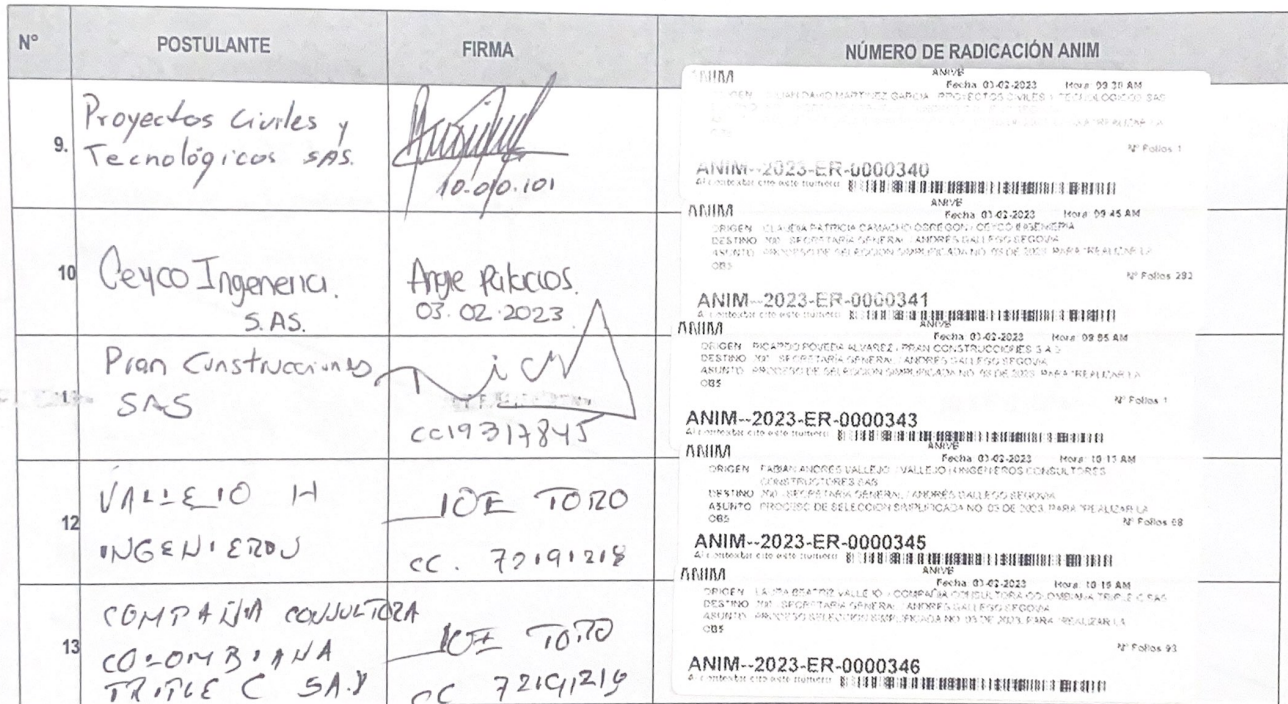 N° POSTULANTE FIRMA NÚMERO DE RADICACIÓN ANIM
9.
Proyectos Civiles y
Tecnológicos SAS.
10.010.101
ANIM
Fecha 03-02-2023 Hora 09 30 AM
N° Folios 1
ANIM--2023-ER-0000340
Al contestar cite este numero
10
Ceyco Ingeneria.
S.AS.
Angie Palacios.
03.02.2023
ANIM
Fecha 03-02-2023 Hora 09 45 AM
ORIGEN CLAUDIA PATRICIA CAMACHO OBREGON / CEYCO INGENIERIA
DESTINO 200 SECRETARÍA GENERAL / ANDRÉS GALLEGO SEGOVIA
ASUNTO PROCESO DE SELECCION SIMPLIFICADA NO. 03 DE 2023. PARA "REALIZAR LA
OBS
N° Folios 292
ANIM--2023-ER-0000341
Al contestar cite este numero
Pran Construcciones
SAS
cc19317845
ANIM
Fecha 03-02-2023 Hora 09 55 AM
ORIGEN RICARDO POVEDA ALVAREZ / PRAN CONSTRUCCIONES S A S
DESTINO 200 SECRETARÍA GENERAL / ANDRÉS GALLEGO SEGOVIA
ASUNTO PROCESO DE SELECCION SIMPLIFICADA NO. 03 DE 2023. PARA "REALIZAR LA
OBS
N° Folios 1
ANIM--2023-ER-0000343
Al contestar cite este numero
12
VALLEJO H
INGENIEROS
JOE TORO
CC. 72191218
ANIM
Fecha 03-02-2023 Hora 10 15 AM
ORIGEN FABIAN ANDRES VALLEJO / VALLEJO H INGENIEROS CONSULTORES
CONSTRUCTORES SAS
DESTINO 200 SECRETARÍA GENERAL / ANDRÉS GALLEGO SEGOVIA
ASUNTO PROCESO DE SELECCION SIMPLIFICADA NO. 03 DE 2023. PARA "REALIZAR LA
OBS
N° Folios 68
ANIM--2023-ER-0000345
Al contestar cite este numero
13
COMPAÑIA CONSULTORA
COLOMBIANA
TRIPLE C SAS
JOE TORO
CC 72191218
ANIM
Fecha 03-02-2023 Hora 10 15 AM
ORIGEN LAURA BEATRIZ VALLEJO / COMPAÑIA CONSULTORA COLOMBIANA TRIPLE C SAS
DESTINO 200 SECRETARÍA GENERAL / ANDRÉS GALLEGO SEGOVIA
ASUNTO PROCESO SELECCION SIMPLIFICADA NO. 03 DE 2023. PARA "REALIZAR LA
OBS
N° Folios 93
ANIM--2023-ER-0000346
Al contestar cite este numero